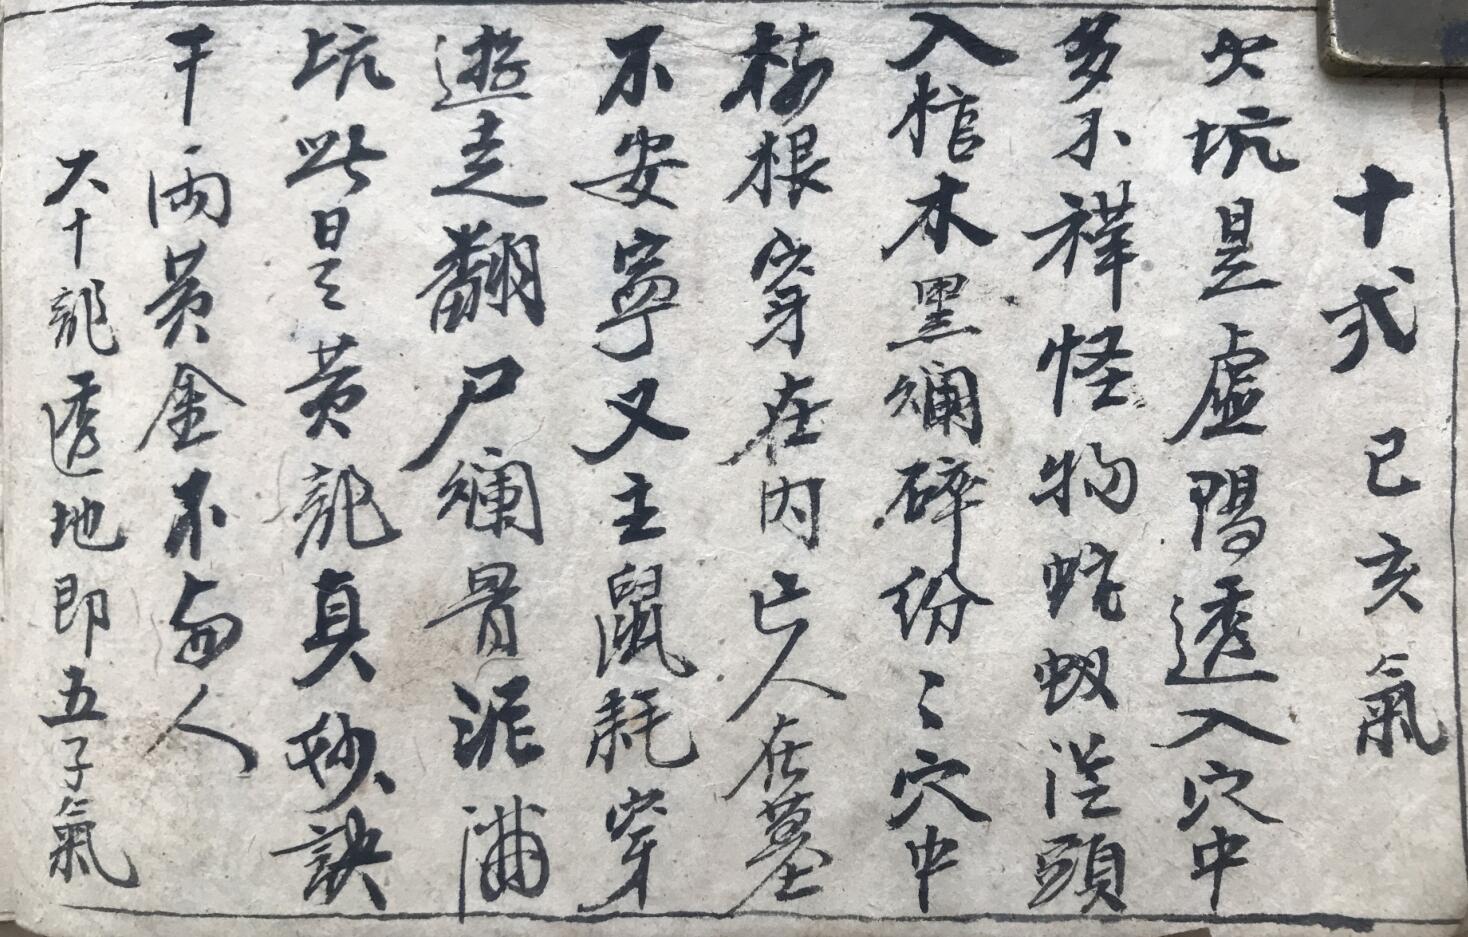 十式 己亥氣
火坑是虛陽透入穴中
多不祥怪物蛇蚁從頭
入棺木黑爛碎纷々穴中
樹根穿在内亡人在墓
不安寧又主鼠耗穿
遊走翻尸爛骨泥滿
坑此是黄龍真妙訣
千両黄金不与人
六十龍透地即五子氣